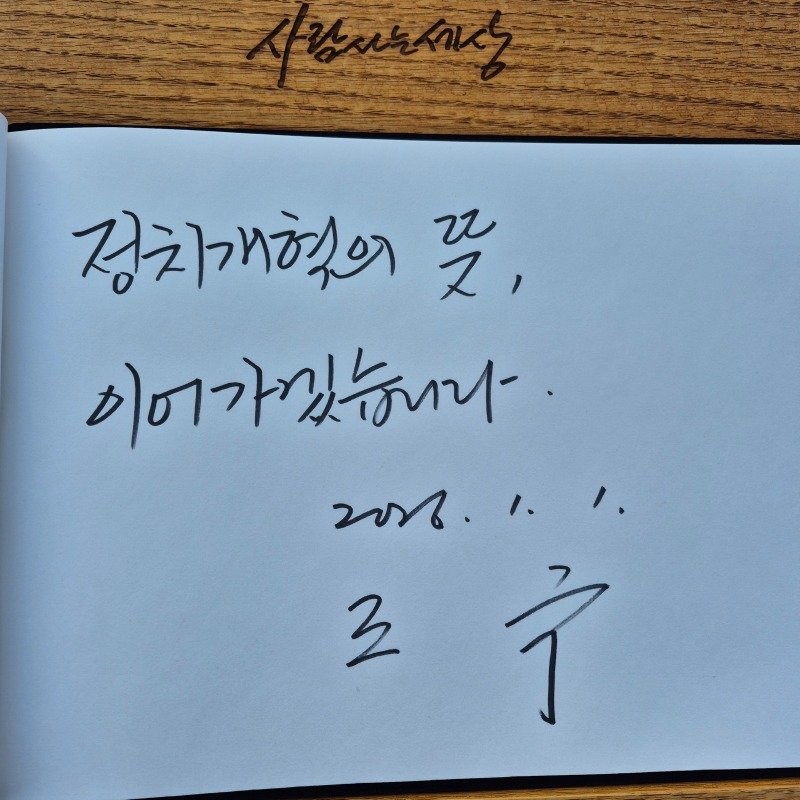 사람사는세상
정치개혁의 뜻,
이어가겠습니다.
2026. 1. 1.